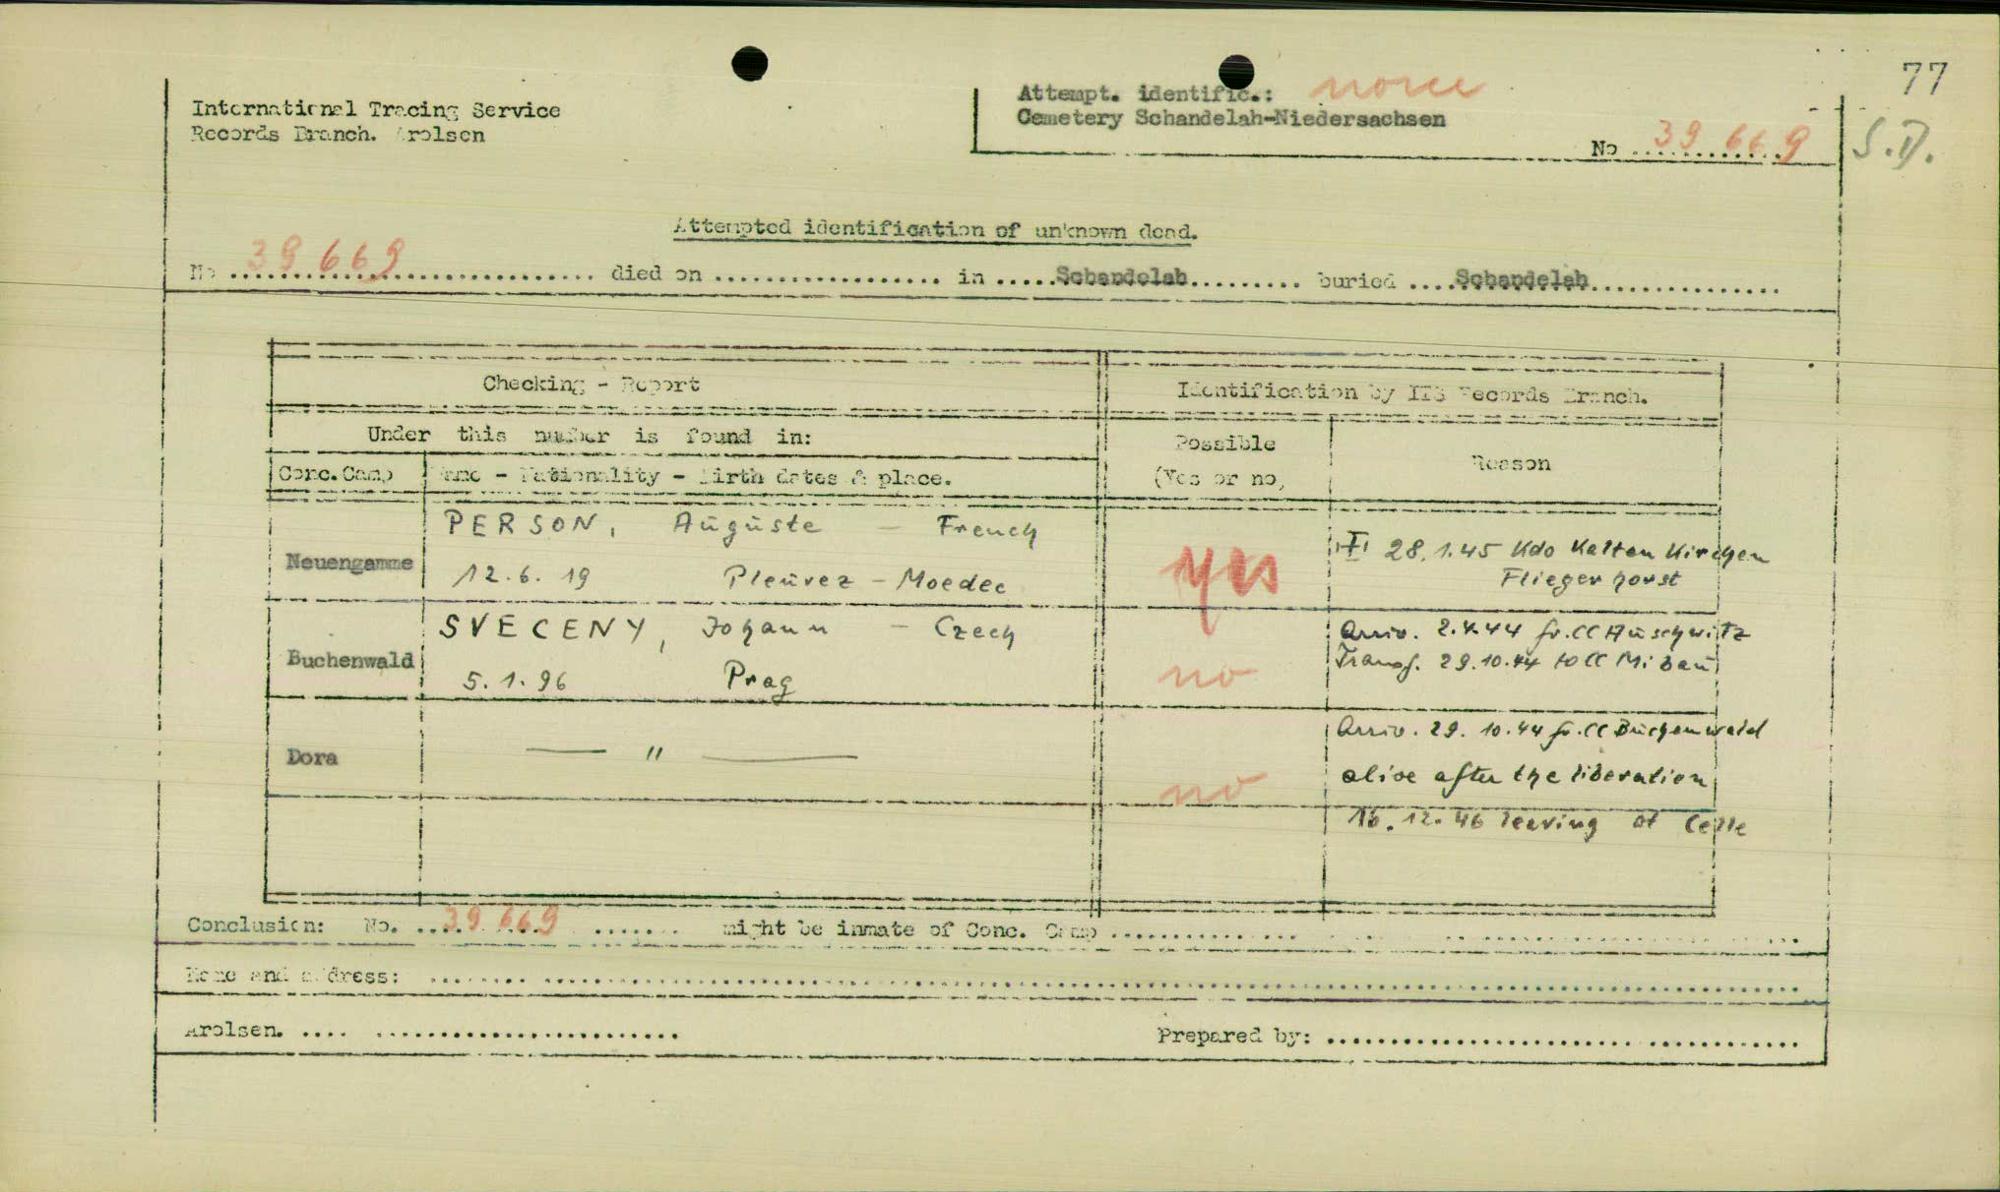 77
International Tracing Service
Records Branch. Arolsen
Attempt. identific.: none
Cemetery Schandelah-Niedersachsen
No 39 669
S.D.
Attempted identification of unknown dead.
No 39 669 died on in Schandelah buried Schandelah
Checking - Report
Identification by ITS Records Branch.
Under this number is found in:
Possible
(Yes or no)
Reason
Conc.Camp
Name - Nationality - Birth dates & place.
PERSON, Auguste - French
Neuengamme
12.6.19 Pleurez - Moedec
yes
28.1.45 Kdo Kaltenkirchen
Fliegerhorst
SVECENY, Johann - Czech
Buchenwald
5.1.96 Prag
no
Arriv. 2.4.44 fr. CC Auschwitz
Transf. 29.10.44 to CC Mibau
Dora
— " —
no
Arriv. 29.10.44 fr. CC Buchenwald
alive after the liberation
16.12.46 leaving at Celle
Conclusion: No. 39 669 might be inmate of Conc. Camp
Name and address:
Arolsen.
Prepared by: